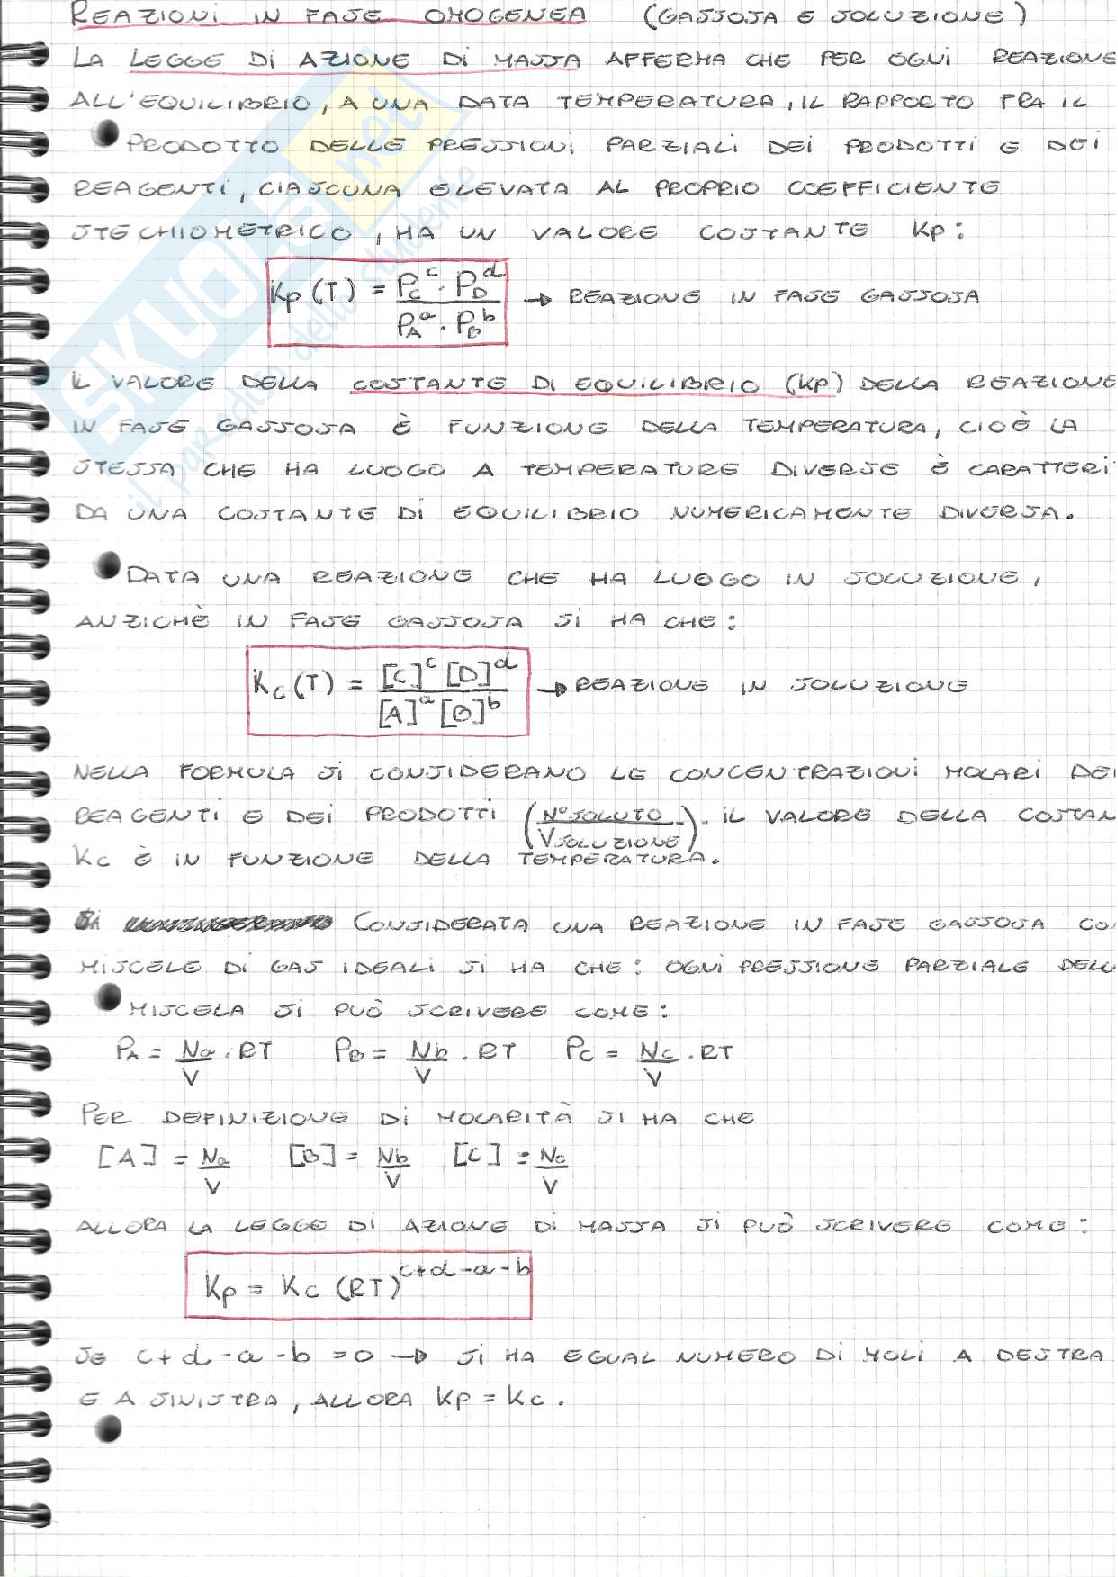 REAZIONI IN FASE OMOGENEA (GASSOSA E SOLUZIONE)
LA LEGGE DI AZIONE DI MASSA AFFERMA CHE PER OGNI REAZIONE
ALL'EQUILIBRIO, A UNA DATA TEMPERATURA, IL RAPPORTO TRA IL
PRODOTTO DELLE PRESSIONI PARZIALI DEI PRODOTTI E DEI
REAGENTI, CIASCUNA ELEVATA AL PROPRIO COEFFICIENTE
STECHIOMETRICO, HA UN VALORE COSTANTE Kp:
Kp (T) = P_C^c · P_D^d / P_A^a · P_B^b → REAZIONE IN FASE GASSOSA
IL VALORE DELLA COSTANTE DI EQUILIBRIO (Kp) DELLA REAZIONE
IN FASE GASSOSA È FUNZIONE DELLA TEMPERATURA, CIOÈ LA
STESSA CHE HA LUOGO A TEMPERATURE DIVERSE È CARATTERI
DA UNA COSTANTE DI EQUILIBRIO NUMERICAMENTE DIVERSA.
DATA UNA REAZIONE CHE HA LUOGO IN SOLUZIONE,
ANZICHÈ IN FASE GASSOSA SI HA CHE:
K_C (T) = [C]^c [D]^d / [A]^a [B]^b → REAZIONE IN SOLUZIONE
NELLA FORMULA SI CONSIDERANO LE CONCENTRAZIONI MOLARI DEI
REAGENTI E DEI PRODOTTI (N° SOLUTO / V SOLUZIONE). IL VALORE DELLA COSTAN
Kc È IN FUNZIONE DELLA TEMPERATURA.
CONSIDERATA UNA REAZIONE IN FASE GASSOSA CO
MISCELE DI GAS IDEALI SI HA CHE: OGNI PRESSIONE PARZIALE DELL
MISCELA SI PUÒ SCRIVERE COME:
P_A = Na/V · RT P_B = Nb/V · RT P_C = Nc/V · RT
PER DEFINIZIONE DI MOLARITÀ SI HA CHE
[A] = Na/V [B] = Nb/V [C] = Nc/V
ALLORA LA LEGGE DI AZIONE DI MASSA SI PUÒ SCRIVERE COME:
Kp = Kc (RT)^c+d-a-b
SE c+d-a-b = 0 → SI HA EGUAL NUMERO DI MOLI A DESTRA
E A SINISTRA, ALLORA Kp = Kc.
SKUOLA.net
il portale dello studente